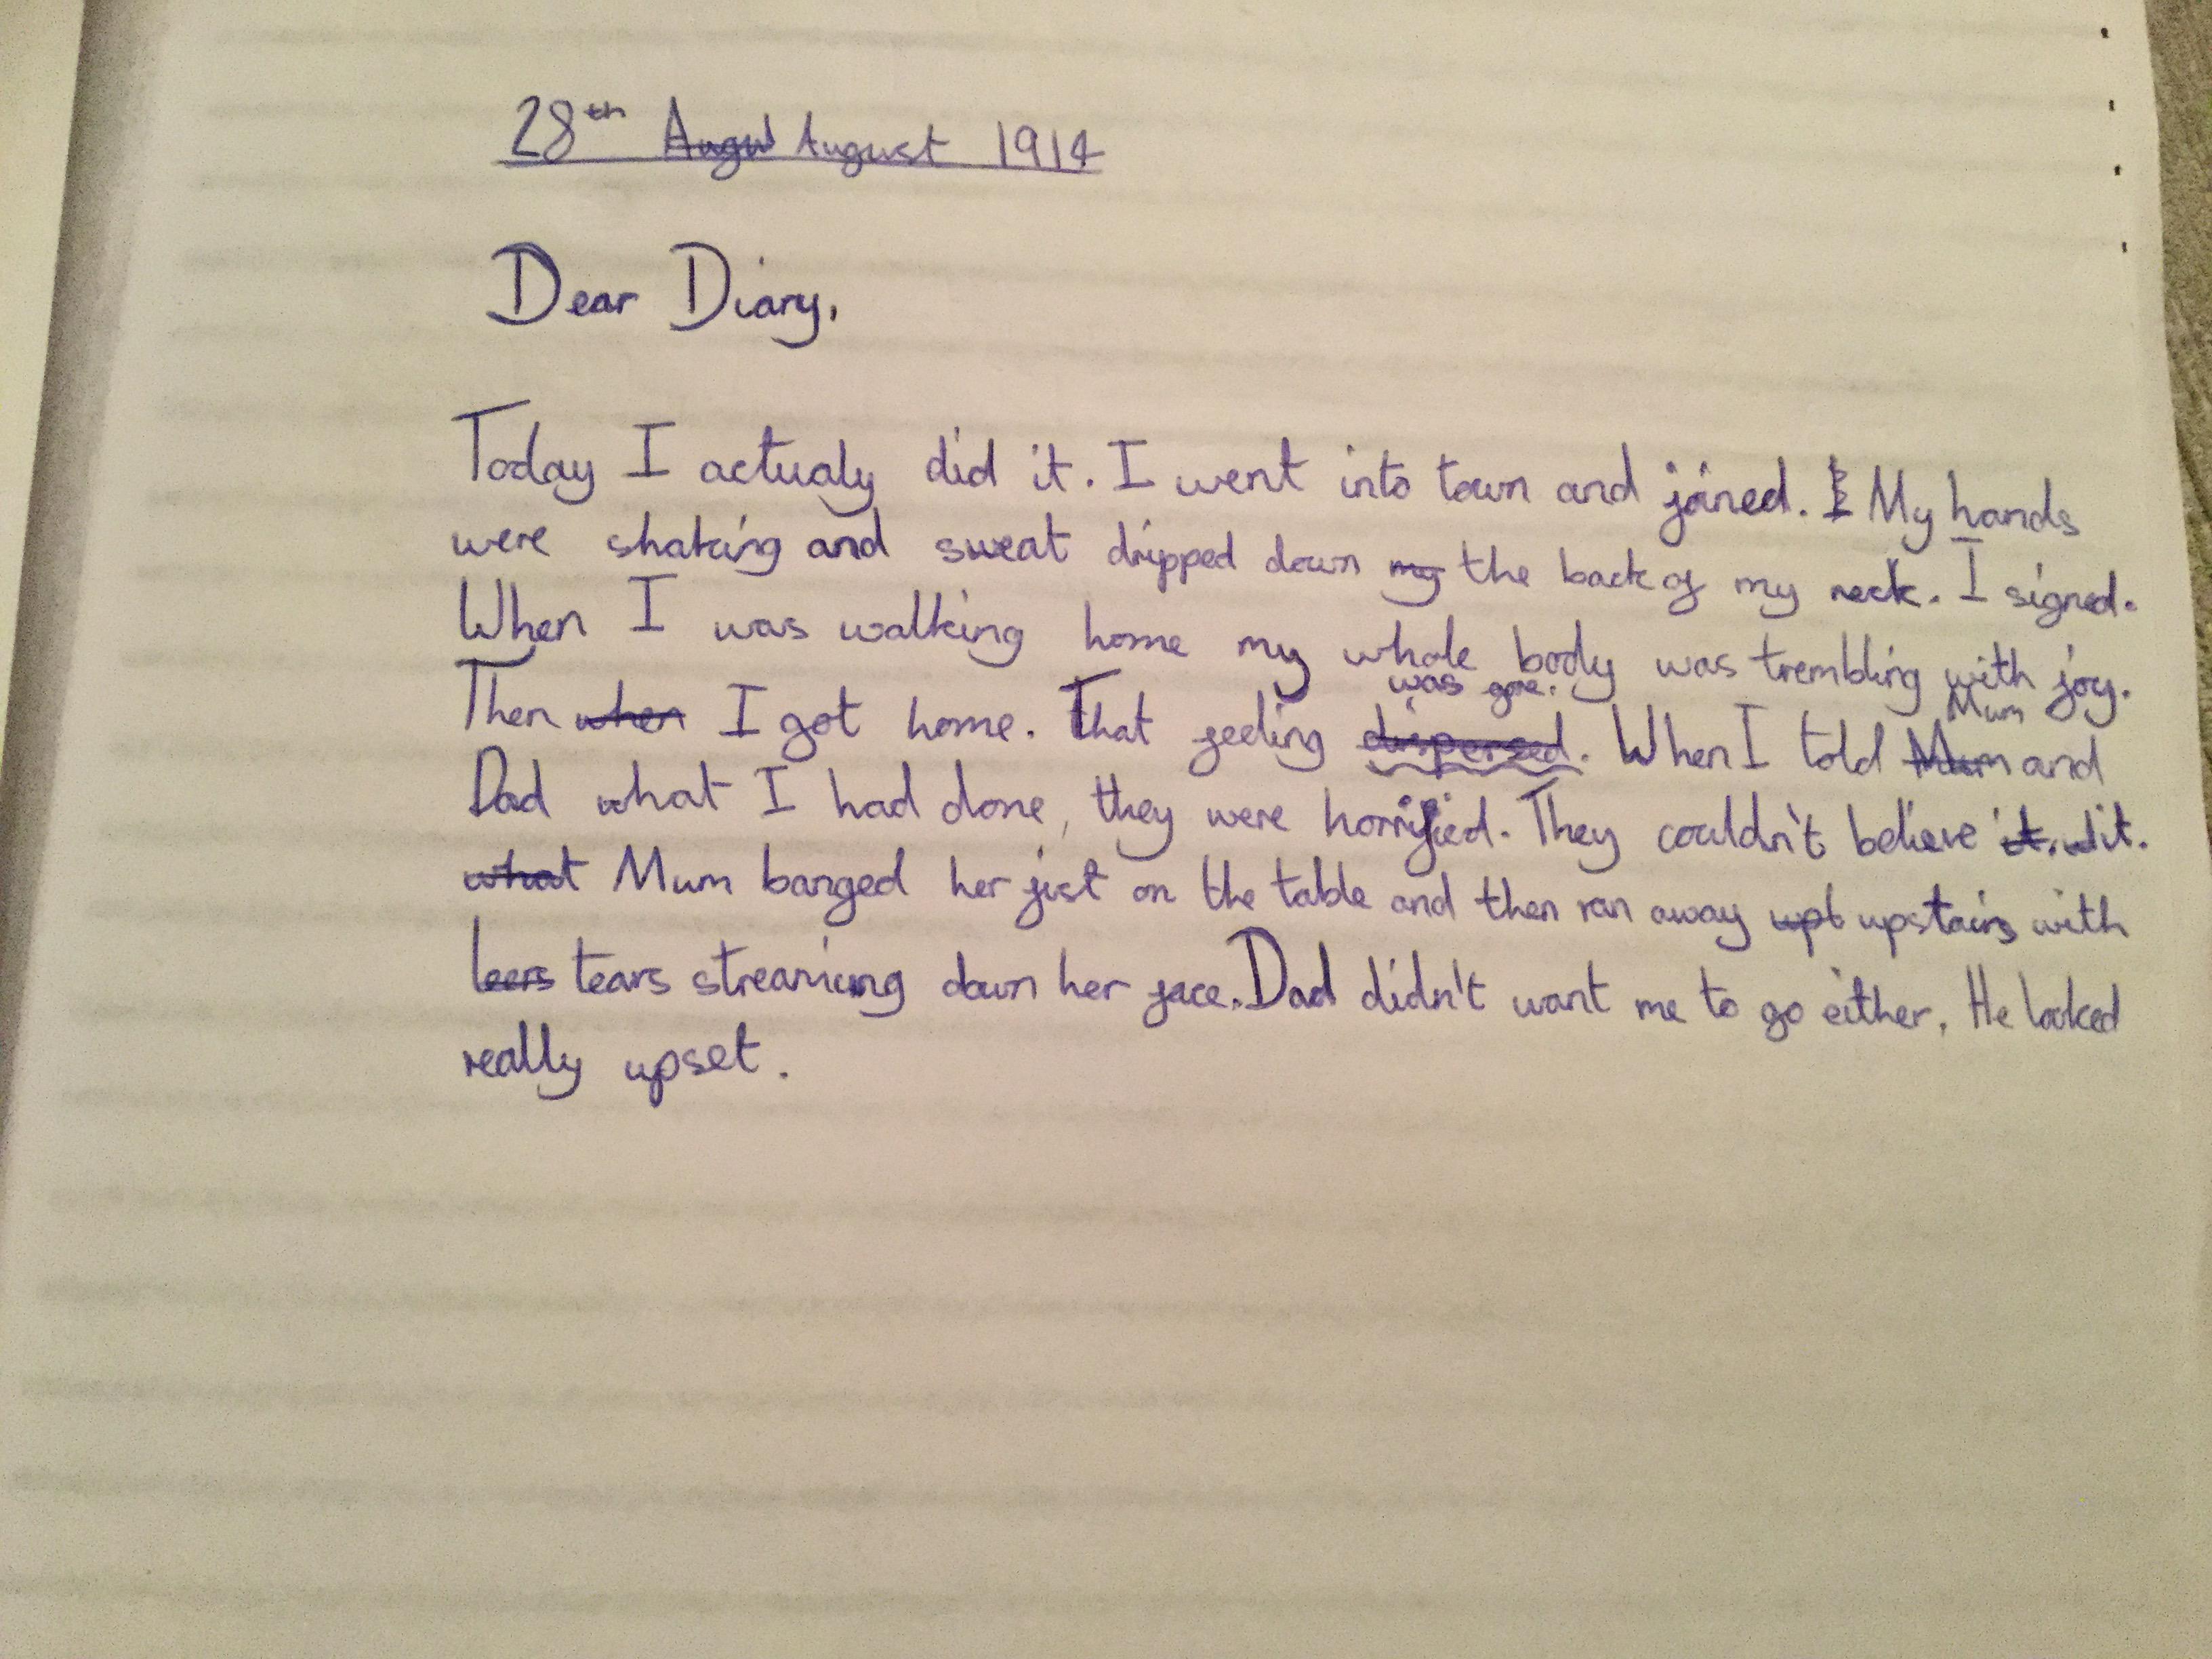 28th Augu August 1914
Dear Diary,
Today I actualy did it. I went into town and joined. I My hands
were shaking and sweat dripped down my the back of my neck. I signed.
When I was walking home my whole body was trembling with joy.
was gone. Mum
Then when I got home. That feeling dispersed. When I told Mum and
Dad what I had done, they were horrified. They couldn't believe it. it.
what Mum banged her fist on the table and then ran away upt upstairs with
teers tears streaming down her face. Dad didn't want me to go either. He looked
really upset.